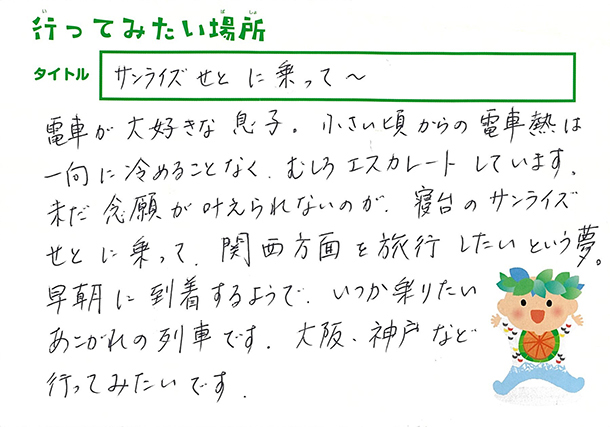 行ってみたい場所
タイトル サンライズ せと に 乗って〜
電車が 大好きな 息子。小さい頃 からの 電車熱は
一向に 冷めることなく、むしろ エスカレート しています。
未だ 念願が 叶えられないのが、寝台の サンライズ
せと に 乗って、関西方面を 旅行 したい という 夢。
早朝に 到着するようで、いつか 乗りたい
あこがれの 列車です。大阪、神戸など
行ってみたいです。